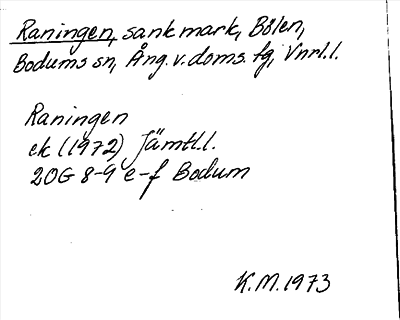 Raningen, sank mark, Bölen,
Bodums sn, Ång. v. doms. tg, Vnrl.l.
Raningen
ek (1972) Jämtl.l.
20G 8-9 e-f Bodum
K.M. 1973